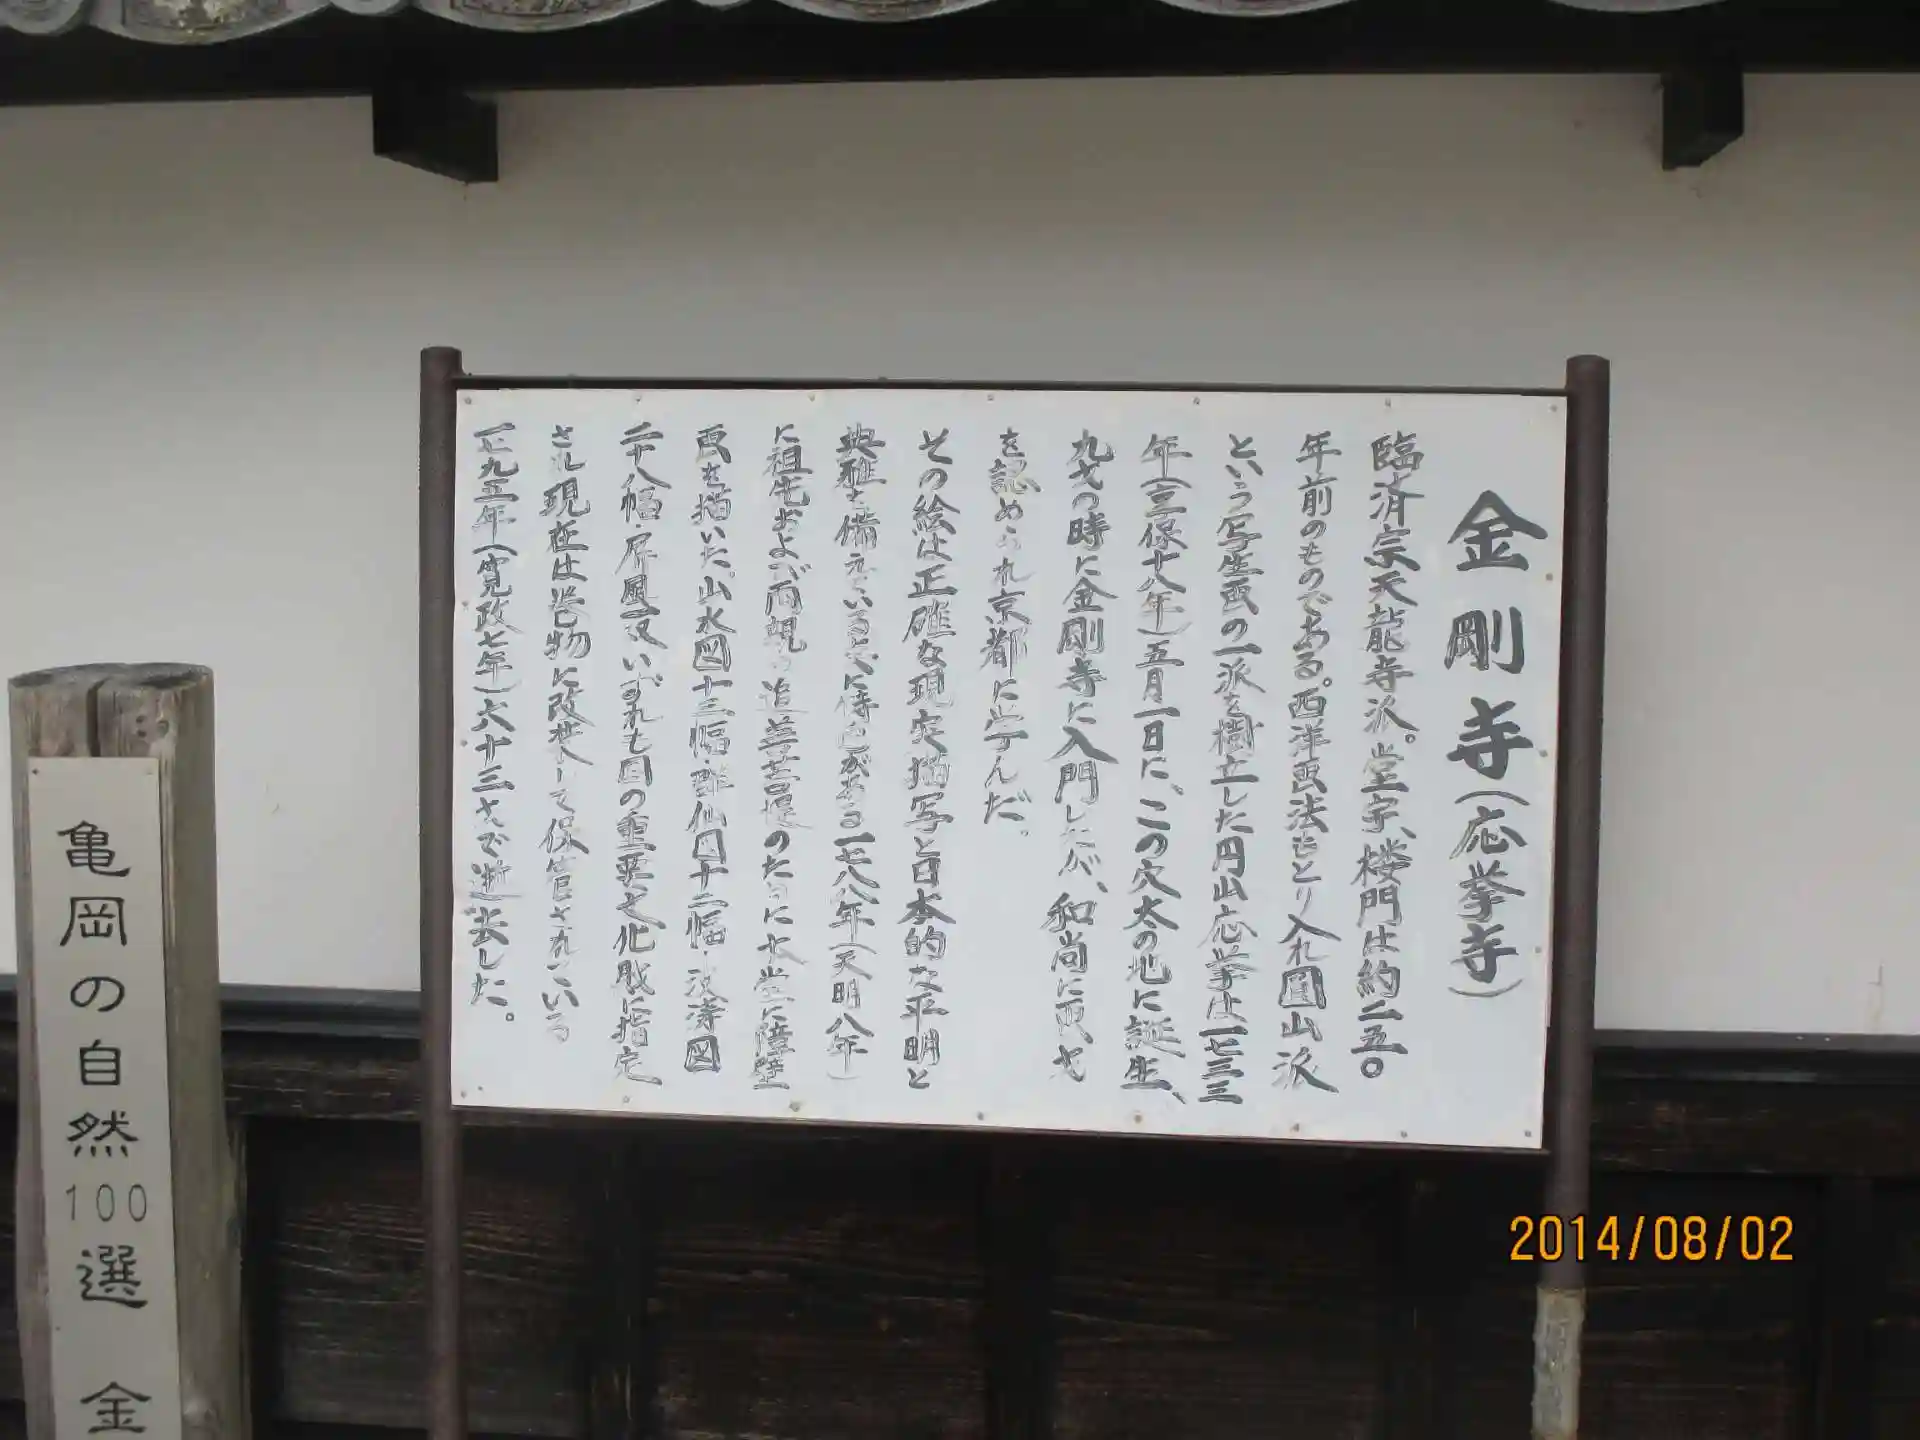 金剛寺(応挙寺)
臨済宗天龍寺派。堂宇、楼門は約二五〇
年前のものである。西洋画法もとり入れ圓山派
という写生画の一派を樹立した円山応挙は一七三三
年(享保十八年)五月一日に、この穴太の地に誕生、
九才の時に金剛寺に入門したが、和尚に画才
を認められ京都に学んだ。
その絵は正確な現実描写と日本的な平明と
典雅を備えている点に特色がある一七八八年(天明八年)
に祖先および両親の追善菩提のために本堂に障壁
画を描いた。山水図十三幅・群仙図十二幅・波涛図
二十八幅・屏風一双いずれも国の重要文化財に指定
され現在は巻物に改装して保管されている
一七九五年(寛政七年)六十三才で逝去した。
亀岡の自然100選 金
2014/08/02